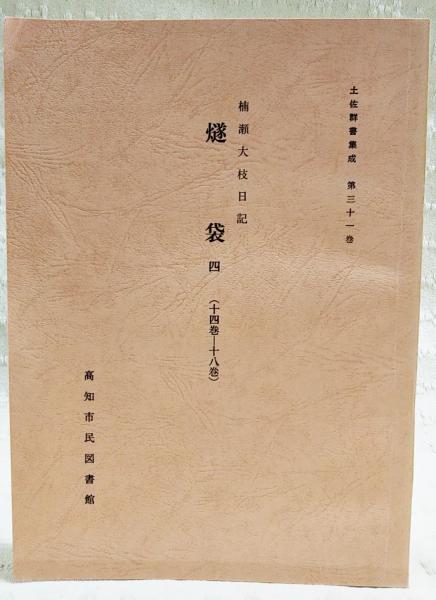 土佐群書集成　第三十一巻
楠瀬大枝日記
燧袋　四　（十四巻―十八巻）
高知市民図書館